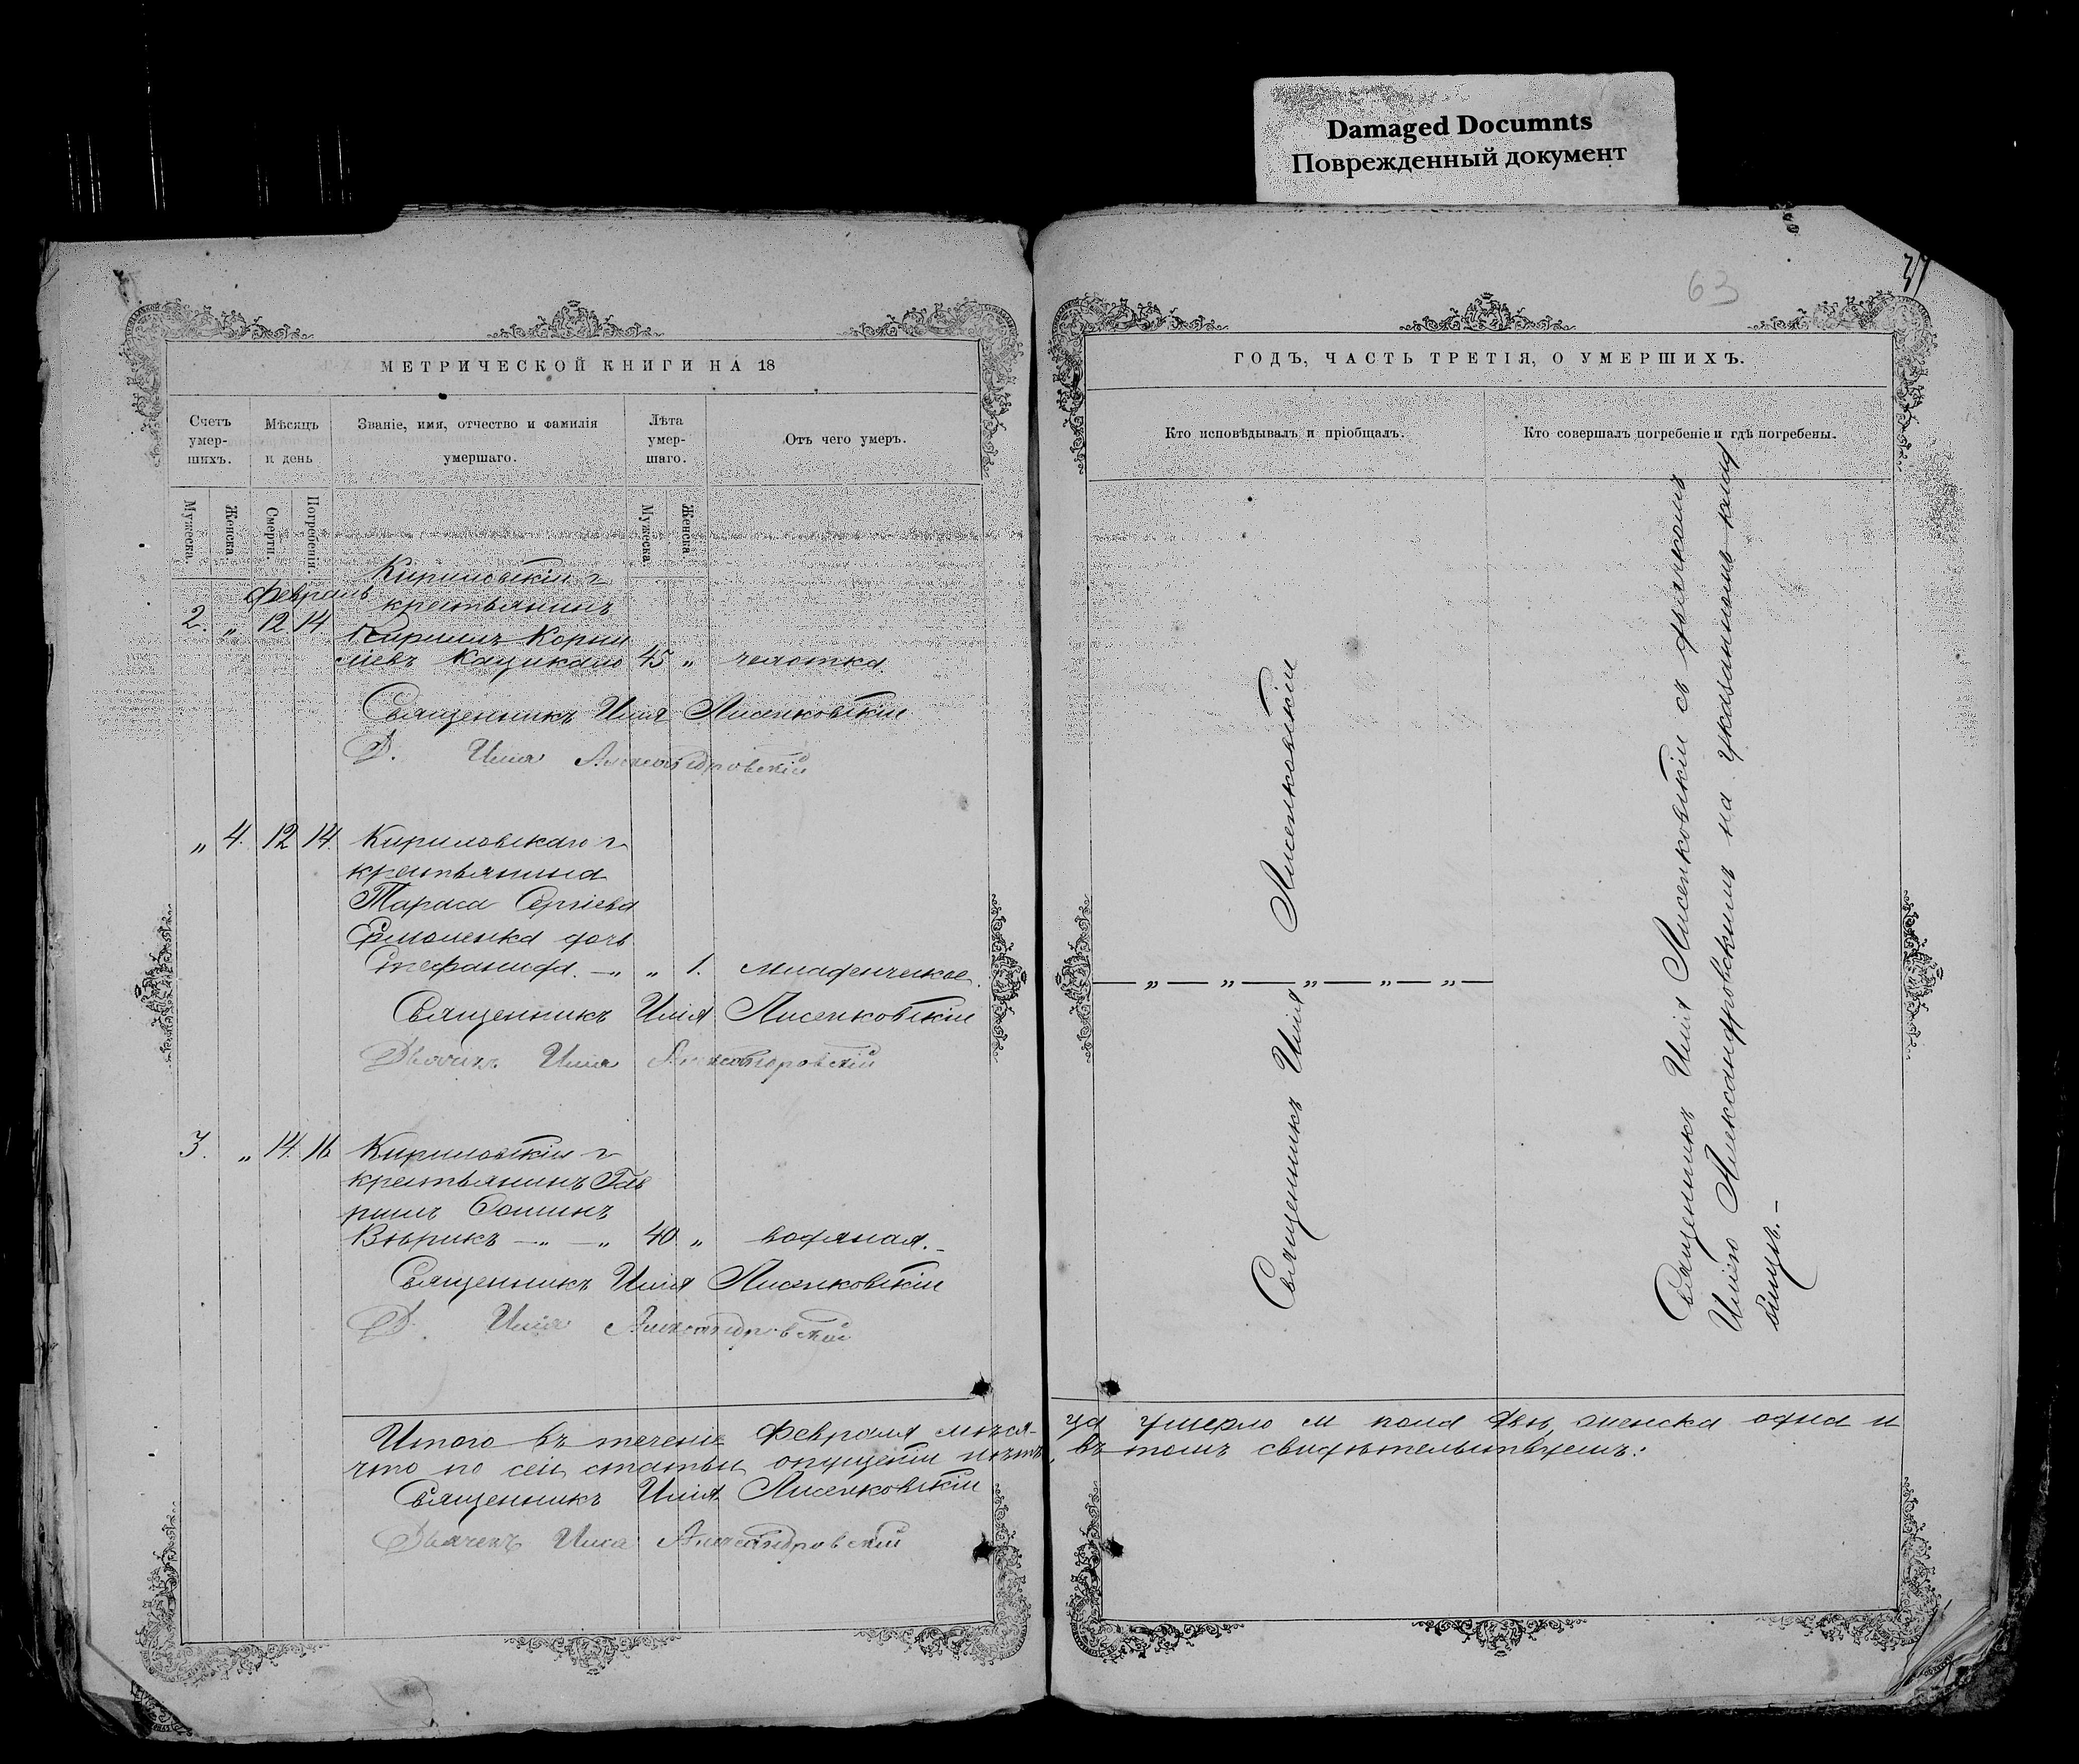 Damaged Documnts
Поврежденный документ
63
МЕТРИЧЕСКОЙ КНИГИ НА 18
Счетъ умер-шихъ.
Мѣсяцъ и день
Званіе, имя, отчество и фамилія умершаго.
Лѣта умер-шаго.
Отъ чего умеръ.
Мужеска.
Женска.
Смерти.
Погребенія.
Мужеска.
Женска.
Февраль
Кириловскій
крестьянинъ
2. „ 12 14 Кириллъ Корни
ліевъ 45 „ чахотка.
Священникъ Илія Лисенковскій
Д. Илія Александровскій
„ 4. 12 14. Кириловскаго
крестьянина
Тараса Сергіева
Ермоленка дочь
Стефанида. — „ „ 1. младенческое.
Священникъ Илія Лисенковскій
Дьячекъ Илія Александровскій
3. „ 14. 16 Кириловскій
крестьянинъ Гав
риилъ Фоминъ
— „ — „ 40. „ водяная. –
Священникъ Илія Лисенковскій
Д. Илія Александровскій
Итого въ теченіе Февраля мѣся-
что по сей статьи опущеній нѣтъ,
Священникъ Илія Лисенковскій
Дьячекъ Илія Александровскій
ГОДЪ, ЧАСТЬ ТРЕТІЯ, О УМЕРШИХЪ.
Кто исповѣдывалъ и пріобщалъ.
Кто совершалъ погребеніе и гдѣ погребены.
Священникъ Илія Лисенковскій
— „ — „ — „ — „ — „ —
Священникъ Илія Лисенковскій съ дьячкомъ
Иліею Александровскимъ на указанномъ клад
бищѣ. –
ца умерло м пола два, женска одна и
въ томъ свидѣтельствуемъ: